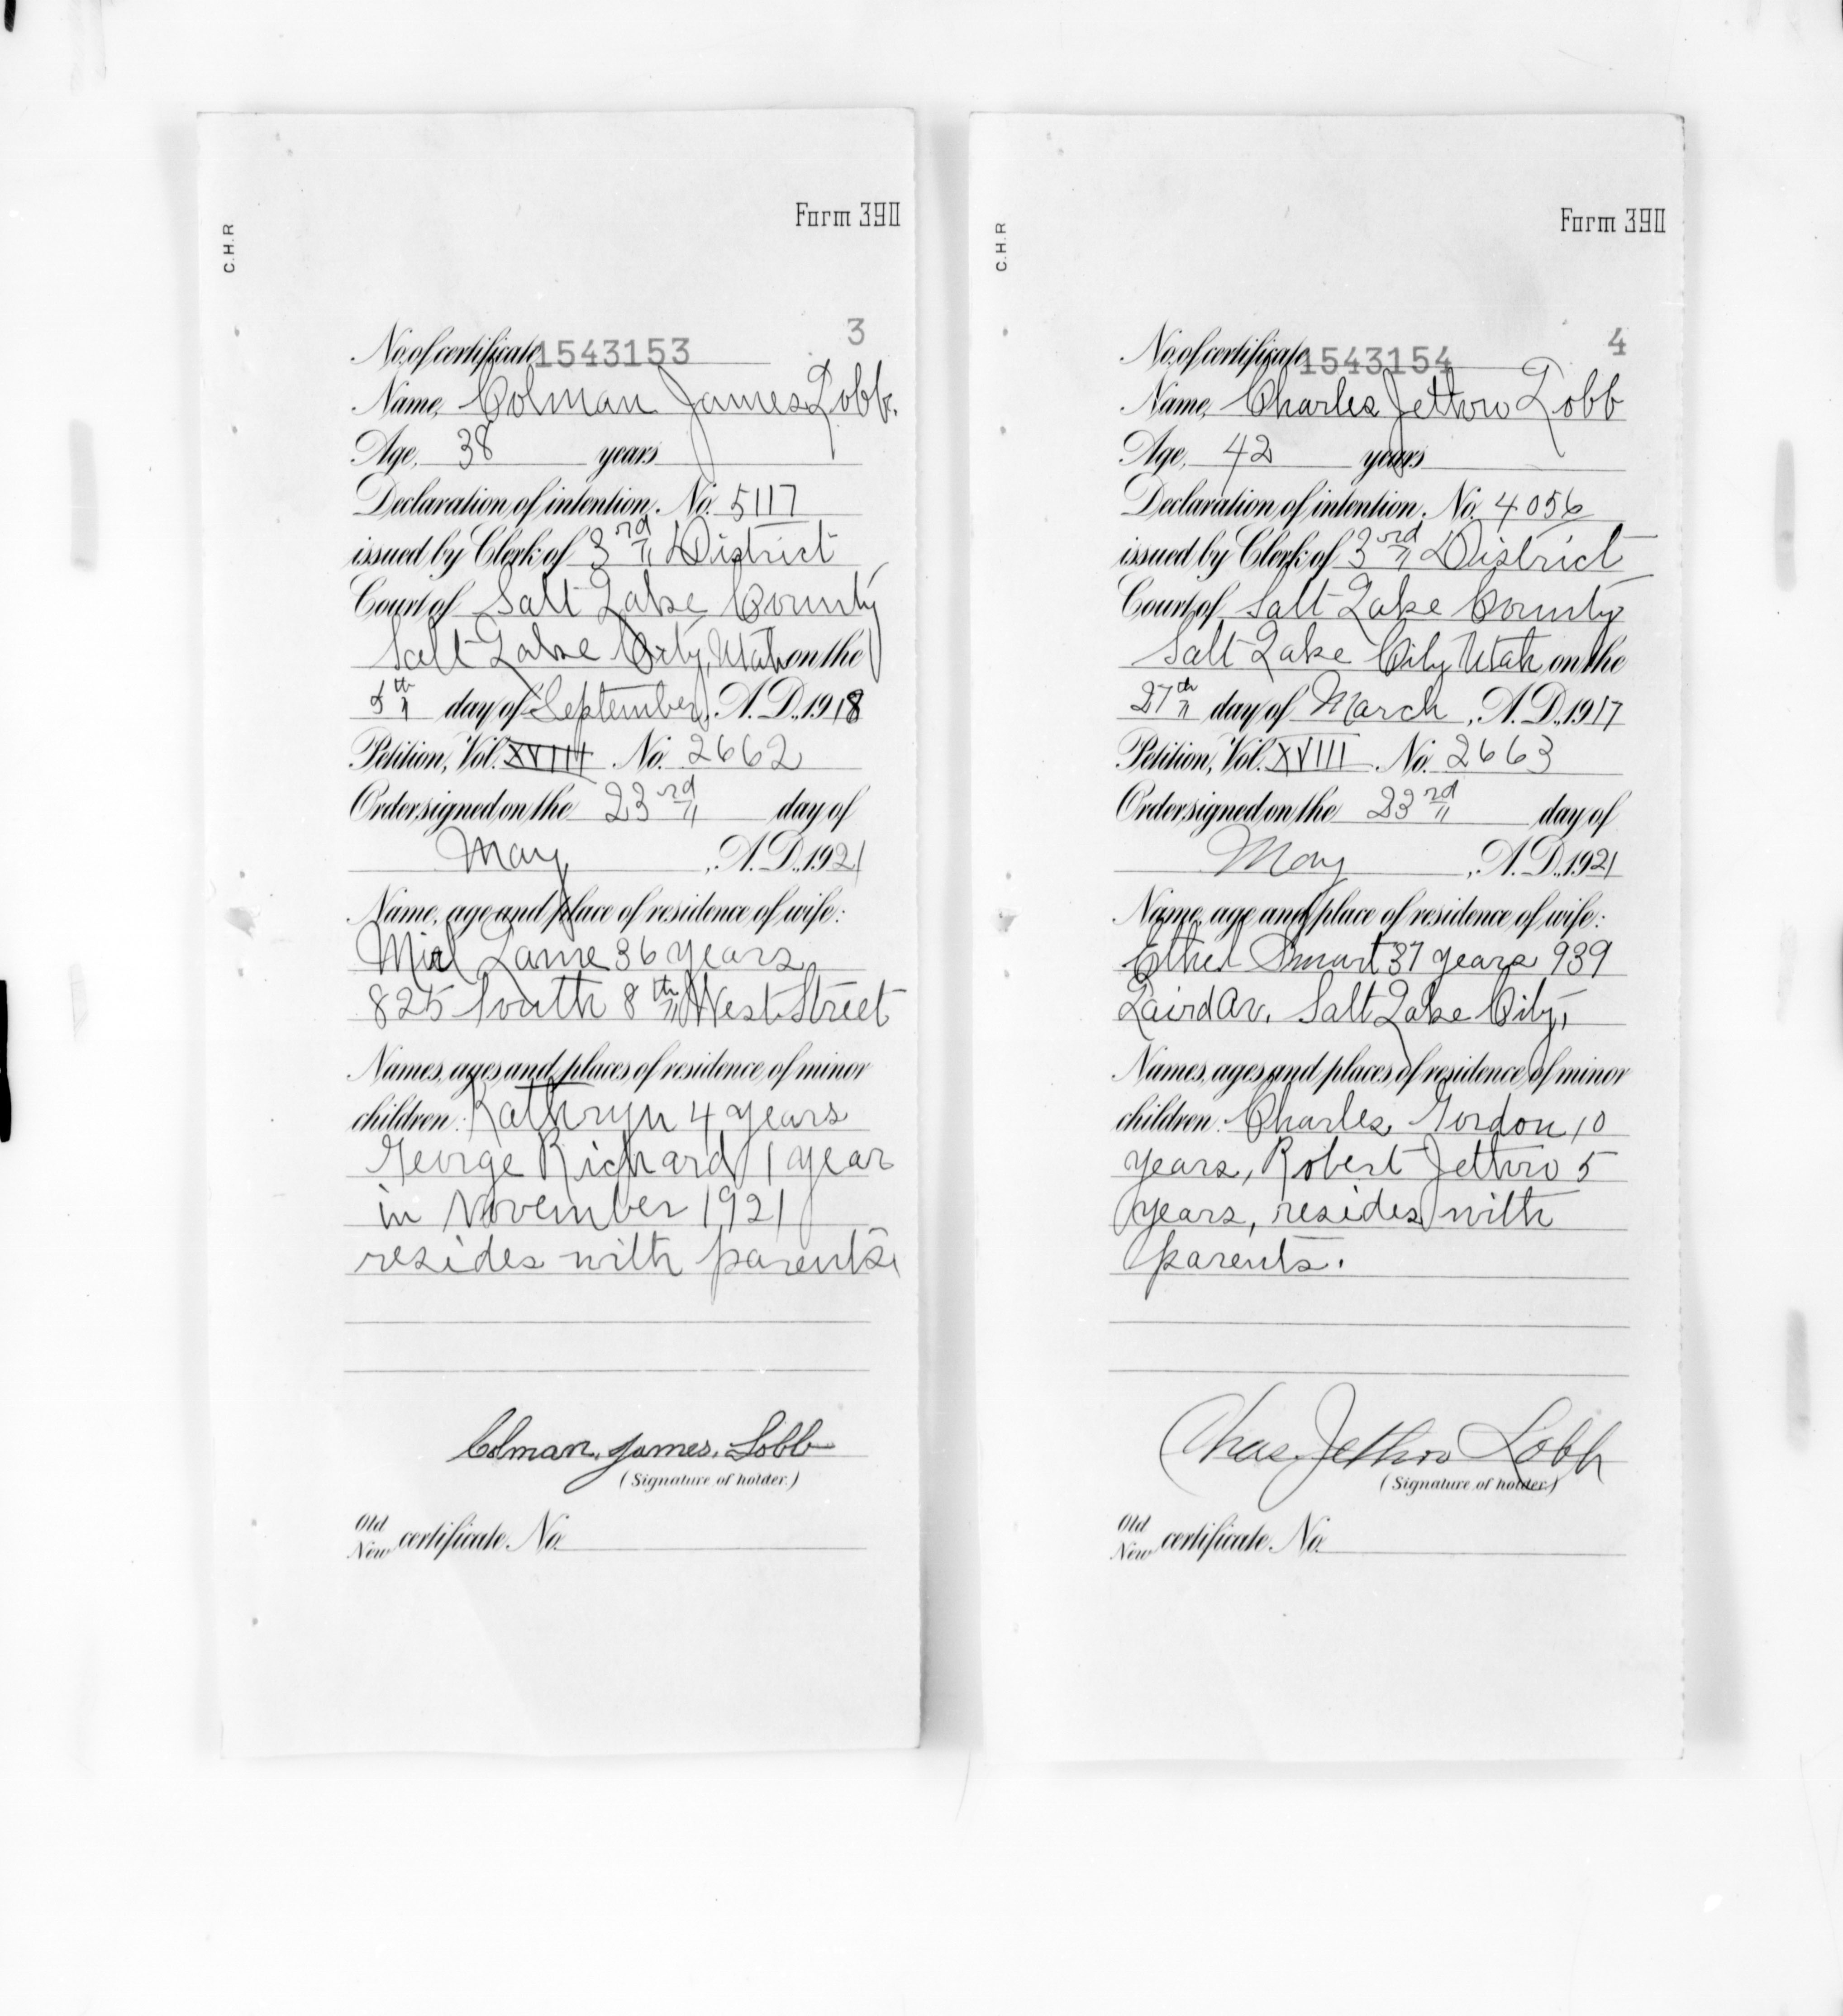 Form 390
C.H.R
3
No. of certificate 1543153
Name, Colman James Lobb.
Age, 38 years
Declaration of intention. No. 5117
issued by Clerk of 3rd District
Court of Salt Lake County
Salt Lake City, Utah on the
5th day of September, A.D., 1918
Petition, Vol. XVIII No. 2662
Order signed on the 23rd day of
May, A.D., 1921
Name, age and place of residence of wife:
Lame 36 years
825 South 8th West Street
Names, ages and places of residence of minor
children: Kathryn 4 years
George Richard 1 year
in November 1921
resides with parents
Colman. James. Lobb
(Signature of holder.)
Old
New certificate No.
Form 390
C.H.R
4
No. of certificate 1543154
Name, Charles Jethro Lobb
Age, 42 years
Declaration of intention. No. 4056
issued by Clerk of 3rd District
Court of Salt Lake County
Salt Lake City Utah on the
27th day of March, A.D., 1917
Petition, Vol. XVIII. No. 2663
Order signed on the 23rd day of
May, A.D., 1921
Name, age and place of residence of wife:
Ethel Smart 37 years 939
Laird Av. Salt Lake City,
Names, ages and places of residence of minor
children: Charles Gordon 10
years, Robert Jethro 5
years, resides with
parents.
Chas. Jethro Lobb
(Signature of holder.)
Old
New certificate No.